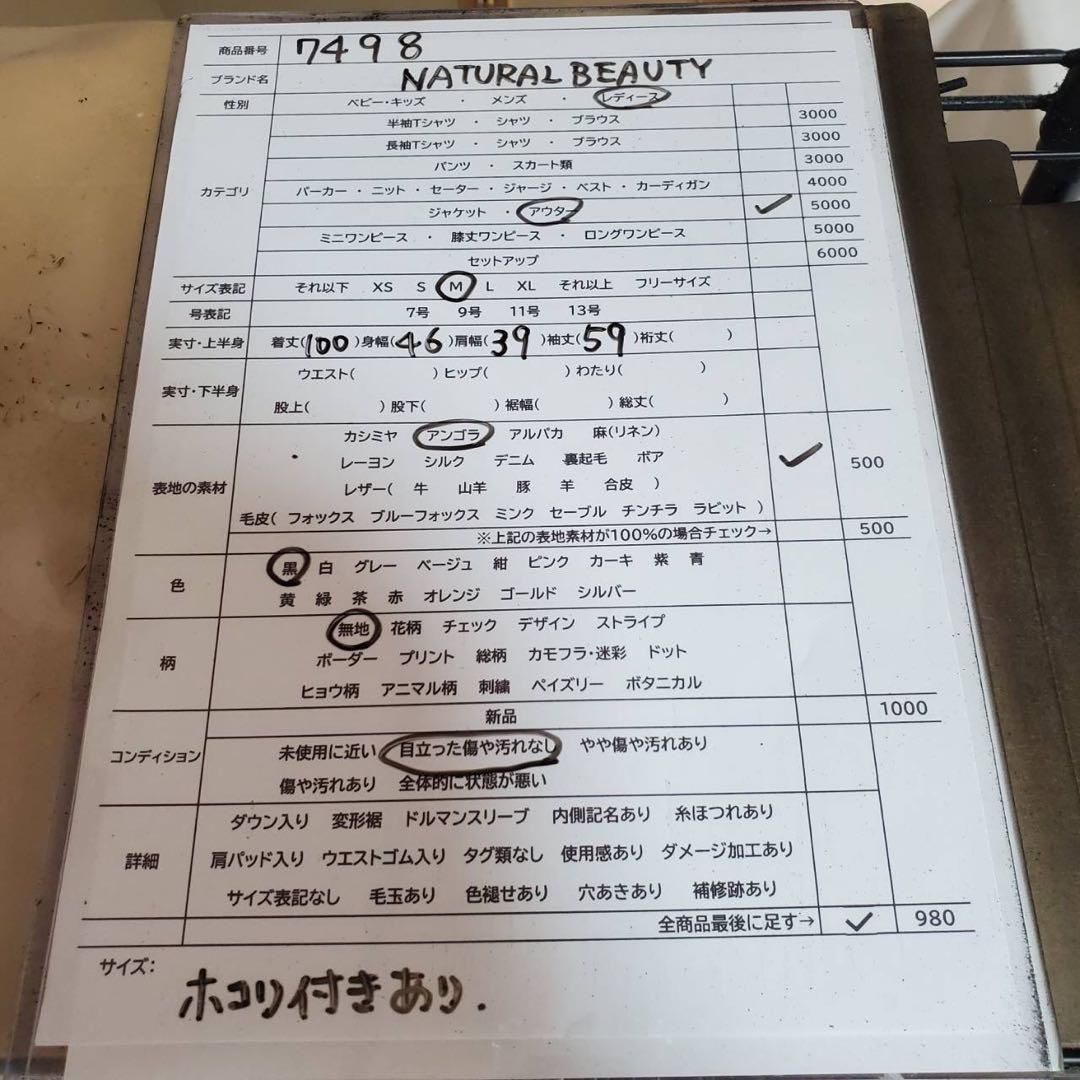 商品番号 7498
ブランド名 NATURAL BEAUTY
性別 ベビー・キッズ ・ メンズ ・ レディース
半袖Tシャツ ・ シャツ ・ ブラウス 3000
長袖Tシャツ ・ シャツ ・ ブラウス 3000
パンツ ・ スカート類 3000
カテゴリ パーカー・ニット・セーター・ジャージ・ベスト・カーディガン 4000
ジャケット ・ アウター ✓ 5000
ミニワンピース ・ 膝丈ワンピース ・ ロングワンピース 5000
セットアップ 6000
サイズ表記 それ以下 XS S M L XL それ以上 フリーサイズ
号表記 7号 9号 11号 13号
実寸・上半身 着丈(100)身幅(46)肩幅(39)袖丈(59)裄丈( )
実寸・下半身 ウエスト( )ヒップ( )わたり( )
股上( )股下( )裾幅( )総丈( )
表地の素材 カシミヤ アンゴラ アルパカ 麻(リネン)
レーヨン シルク デニム 裏起毛 ボア ✓ 500
レザー( 牛 山羊 豚 羊 合皮 )
毛皮( フォックス ブルーフォックス ミンク セーブル チンチラ ラビット )
※上記の表地素材が100%の場合チェック→ 500
色 黒 白 グレー ベージュ 紺 ピンク カーキ 紫 青
黄 緑 茶 赤 オレンジ ゴールド シルバー
柄 無地 花柄 チェック デザイン ストライプ
ボーダー プリント 総柄 カモフラ・迷彩 ドット
ヒョウ柄 アニマル柄 刺繍 ペイズリー ボタニカル
新品 1000
コンディション 未使用に近い 目立った傷や汚れなし やや傷や汚れあり
傷や汚れあり 全体的に状態が悪い
詳細 ダウン入り 変形裾 ドルマンスリーブ 内側記名あり 糸ほつれあり
肩パッド入り ウエストゴム入り タグ類なし 使用感あり ダメージ加工あり
サイズ表記なし 毛玉あり 色褪せあり 穴あきあり 補修跡あり
全商品最後に足す→ ✓ 980
サイズ:
ホコリ付きあり.